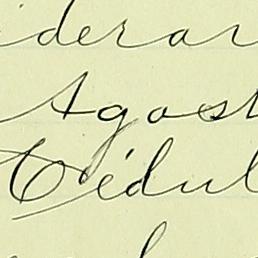 iderar
Agost
Cédul